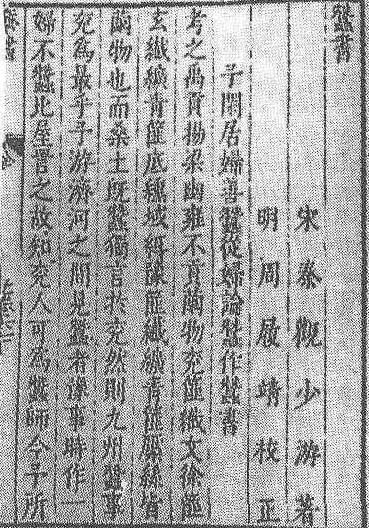 蠶書
宋秦觀少游著
明周履靖校正
予閒居婦善蠶從婦論蠶作蠶書
考之禹貢揚梁幽雍不貢繭物兗篚織文徐篚
玄纖縞篚纁璣組豫篚纖纊青篚檿絲皆
繭物也而桑土既蠶獨言於兗然則九州蠶事
兗為最乎予游濟河之間見蠶者豫事時作一
婦不蠶比屋詈之故知兗人可為蠶師今予所